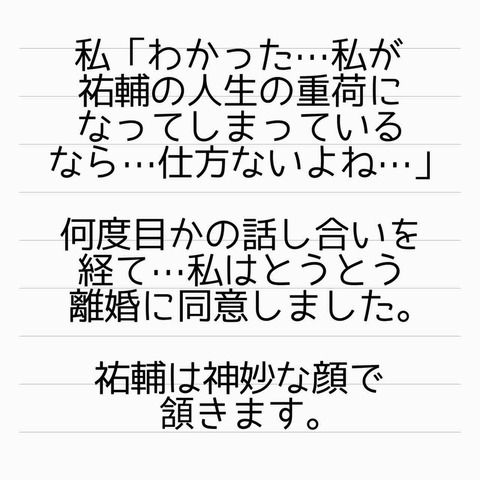 私「わかった…私が
祐輔の人生の重荷に
なってしまっている
なら…仕方ないよね…」
何度目かの話し合いを
経て…私はとうとう
離婚に同意しました。
祐輔は神妙な顔で
頷きます。